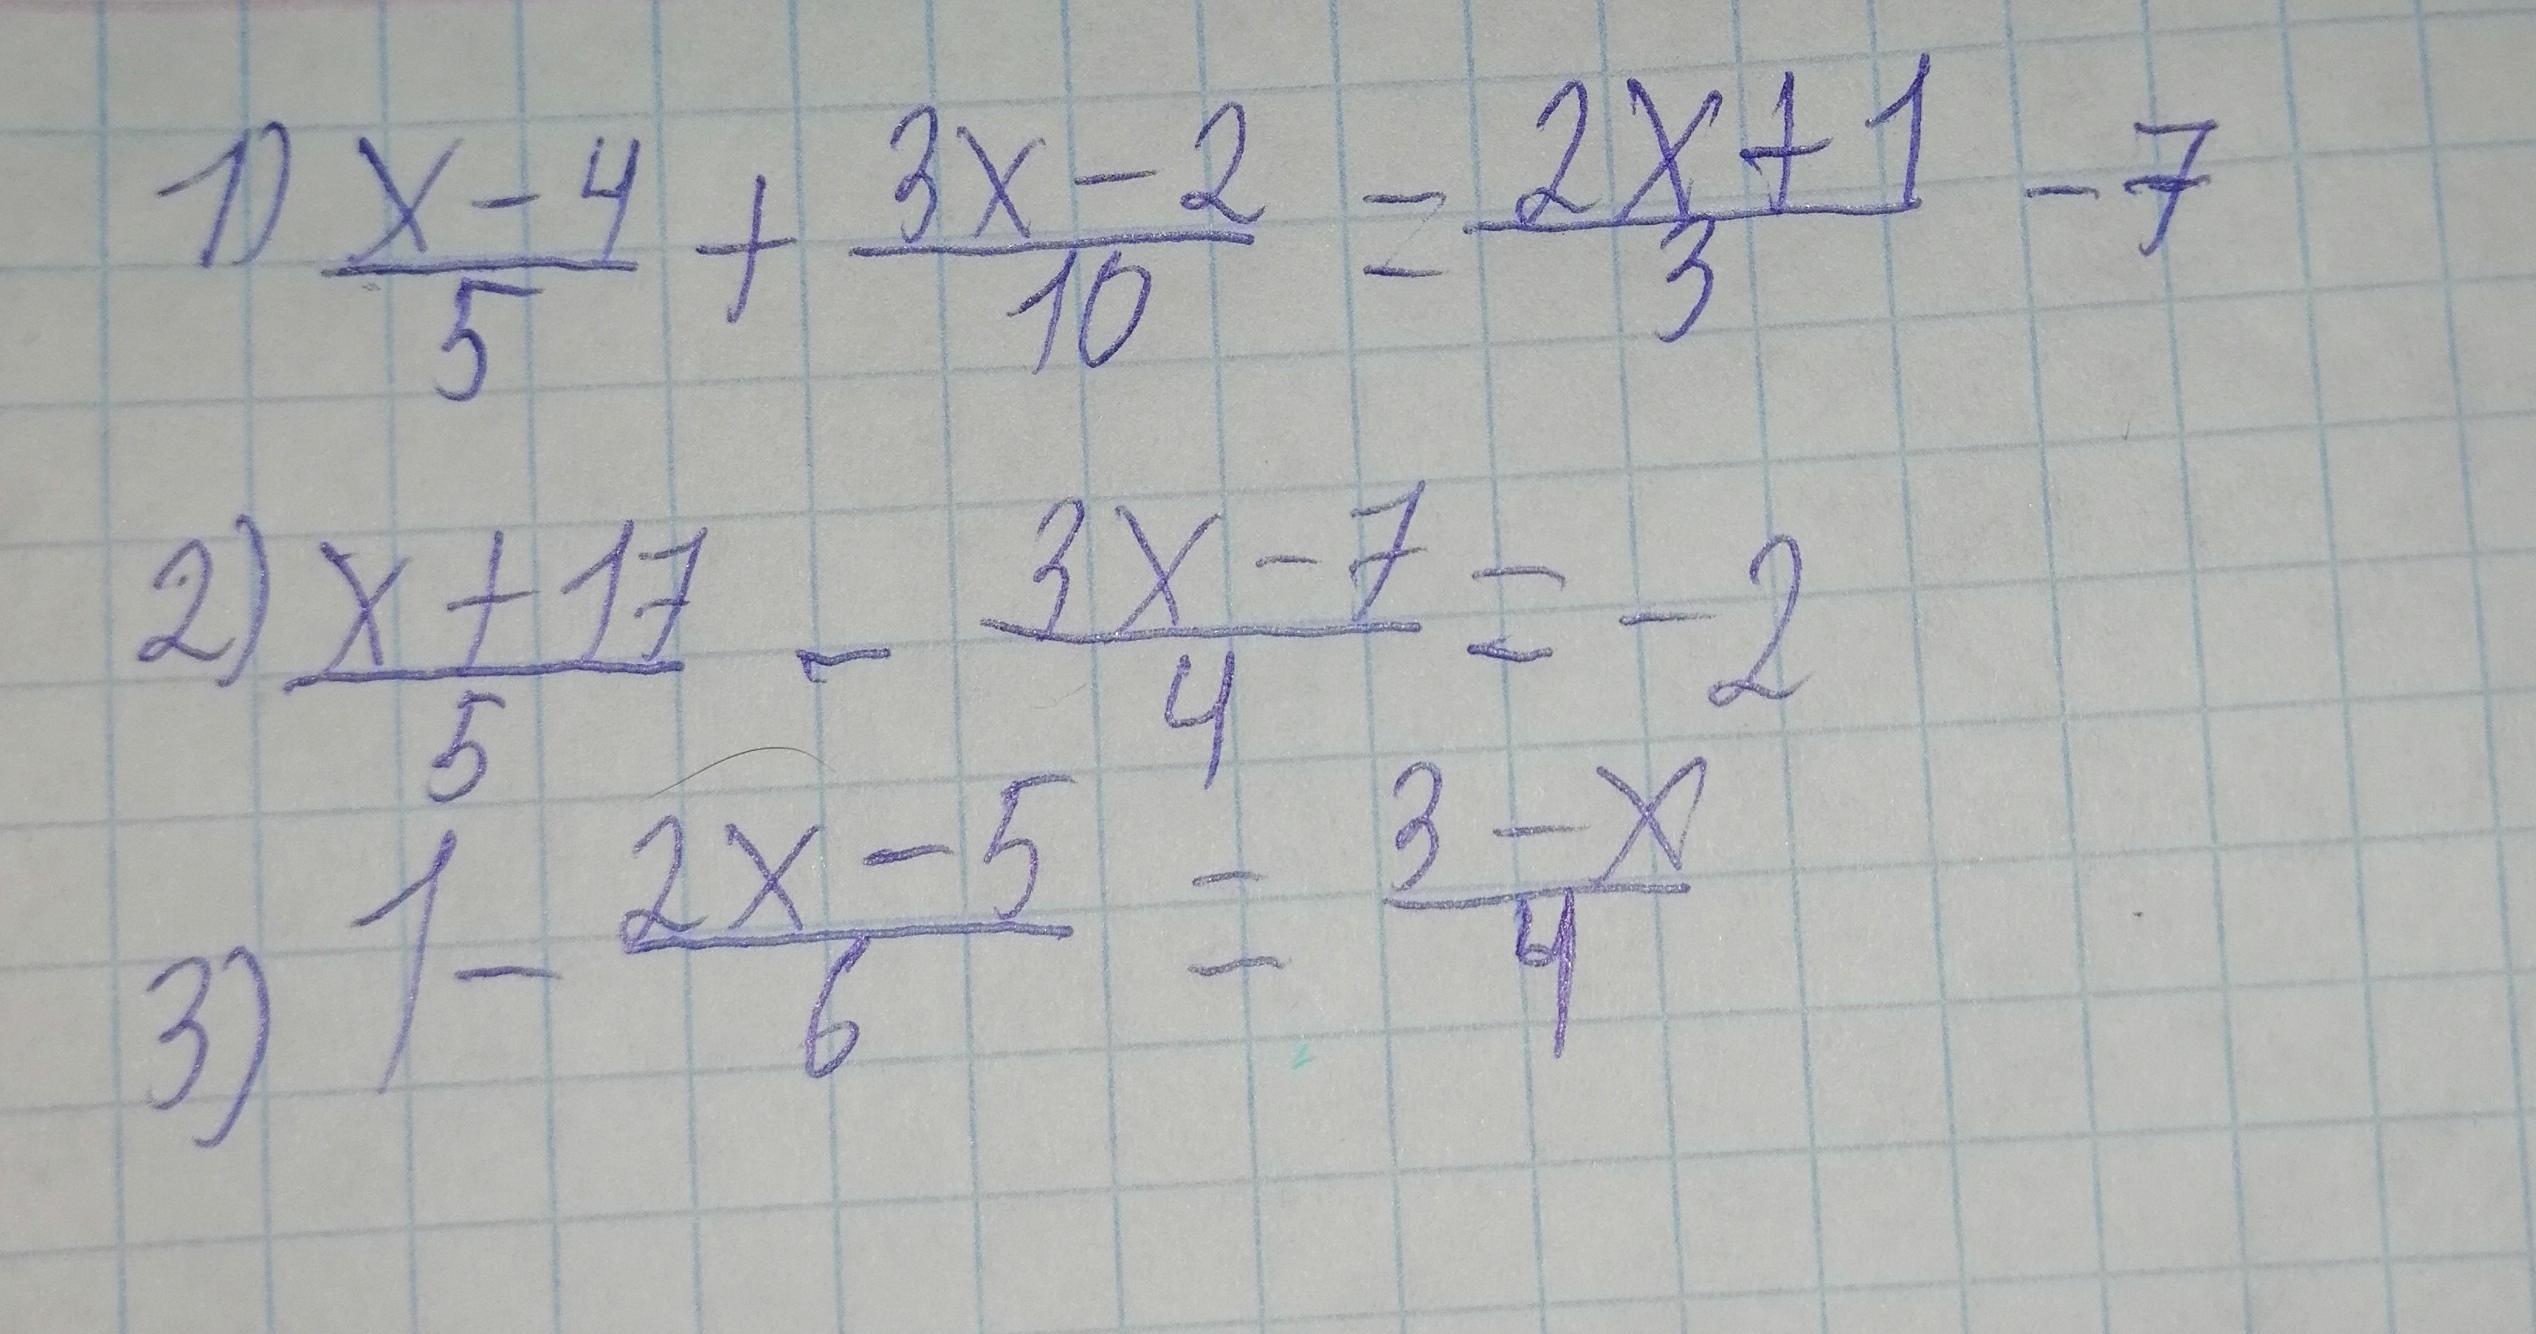 1) (x-4)/5 + (3x-2)/10 = (2x+1)/3 - 7
2) (x+17)/5 - (3x-7)/4 = -2
3) 1 - (2x-5)/6 = (3-x)/4